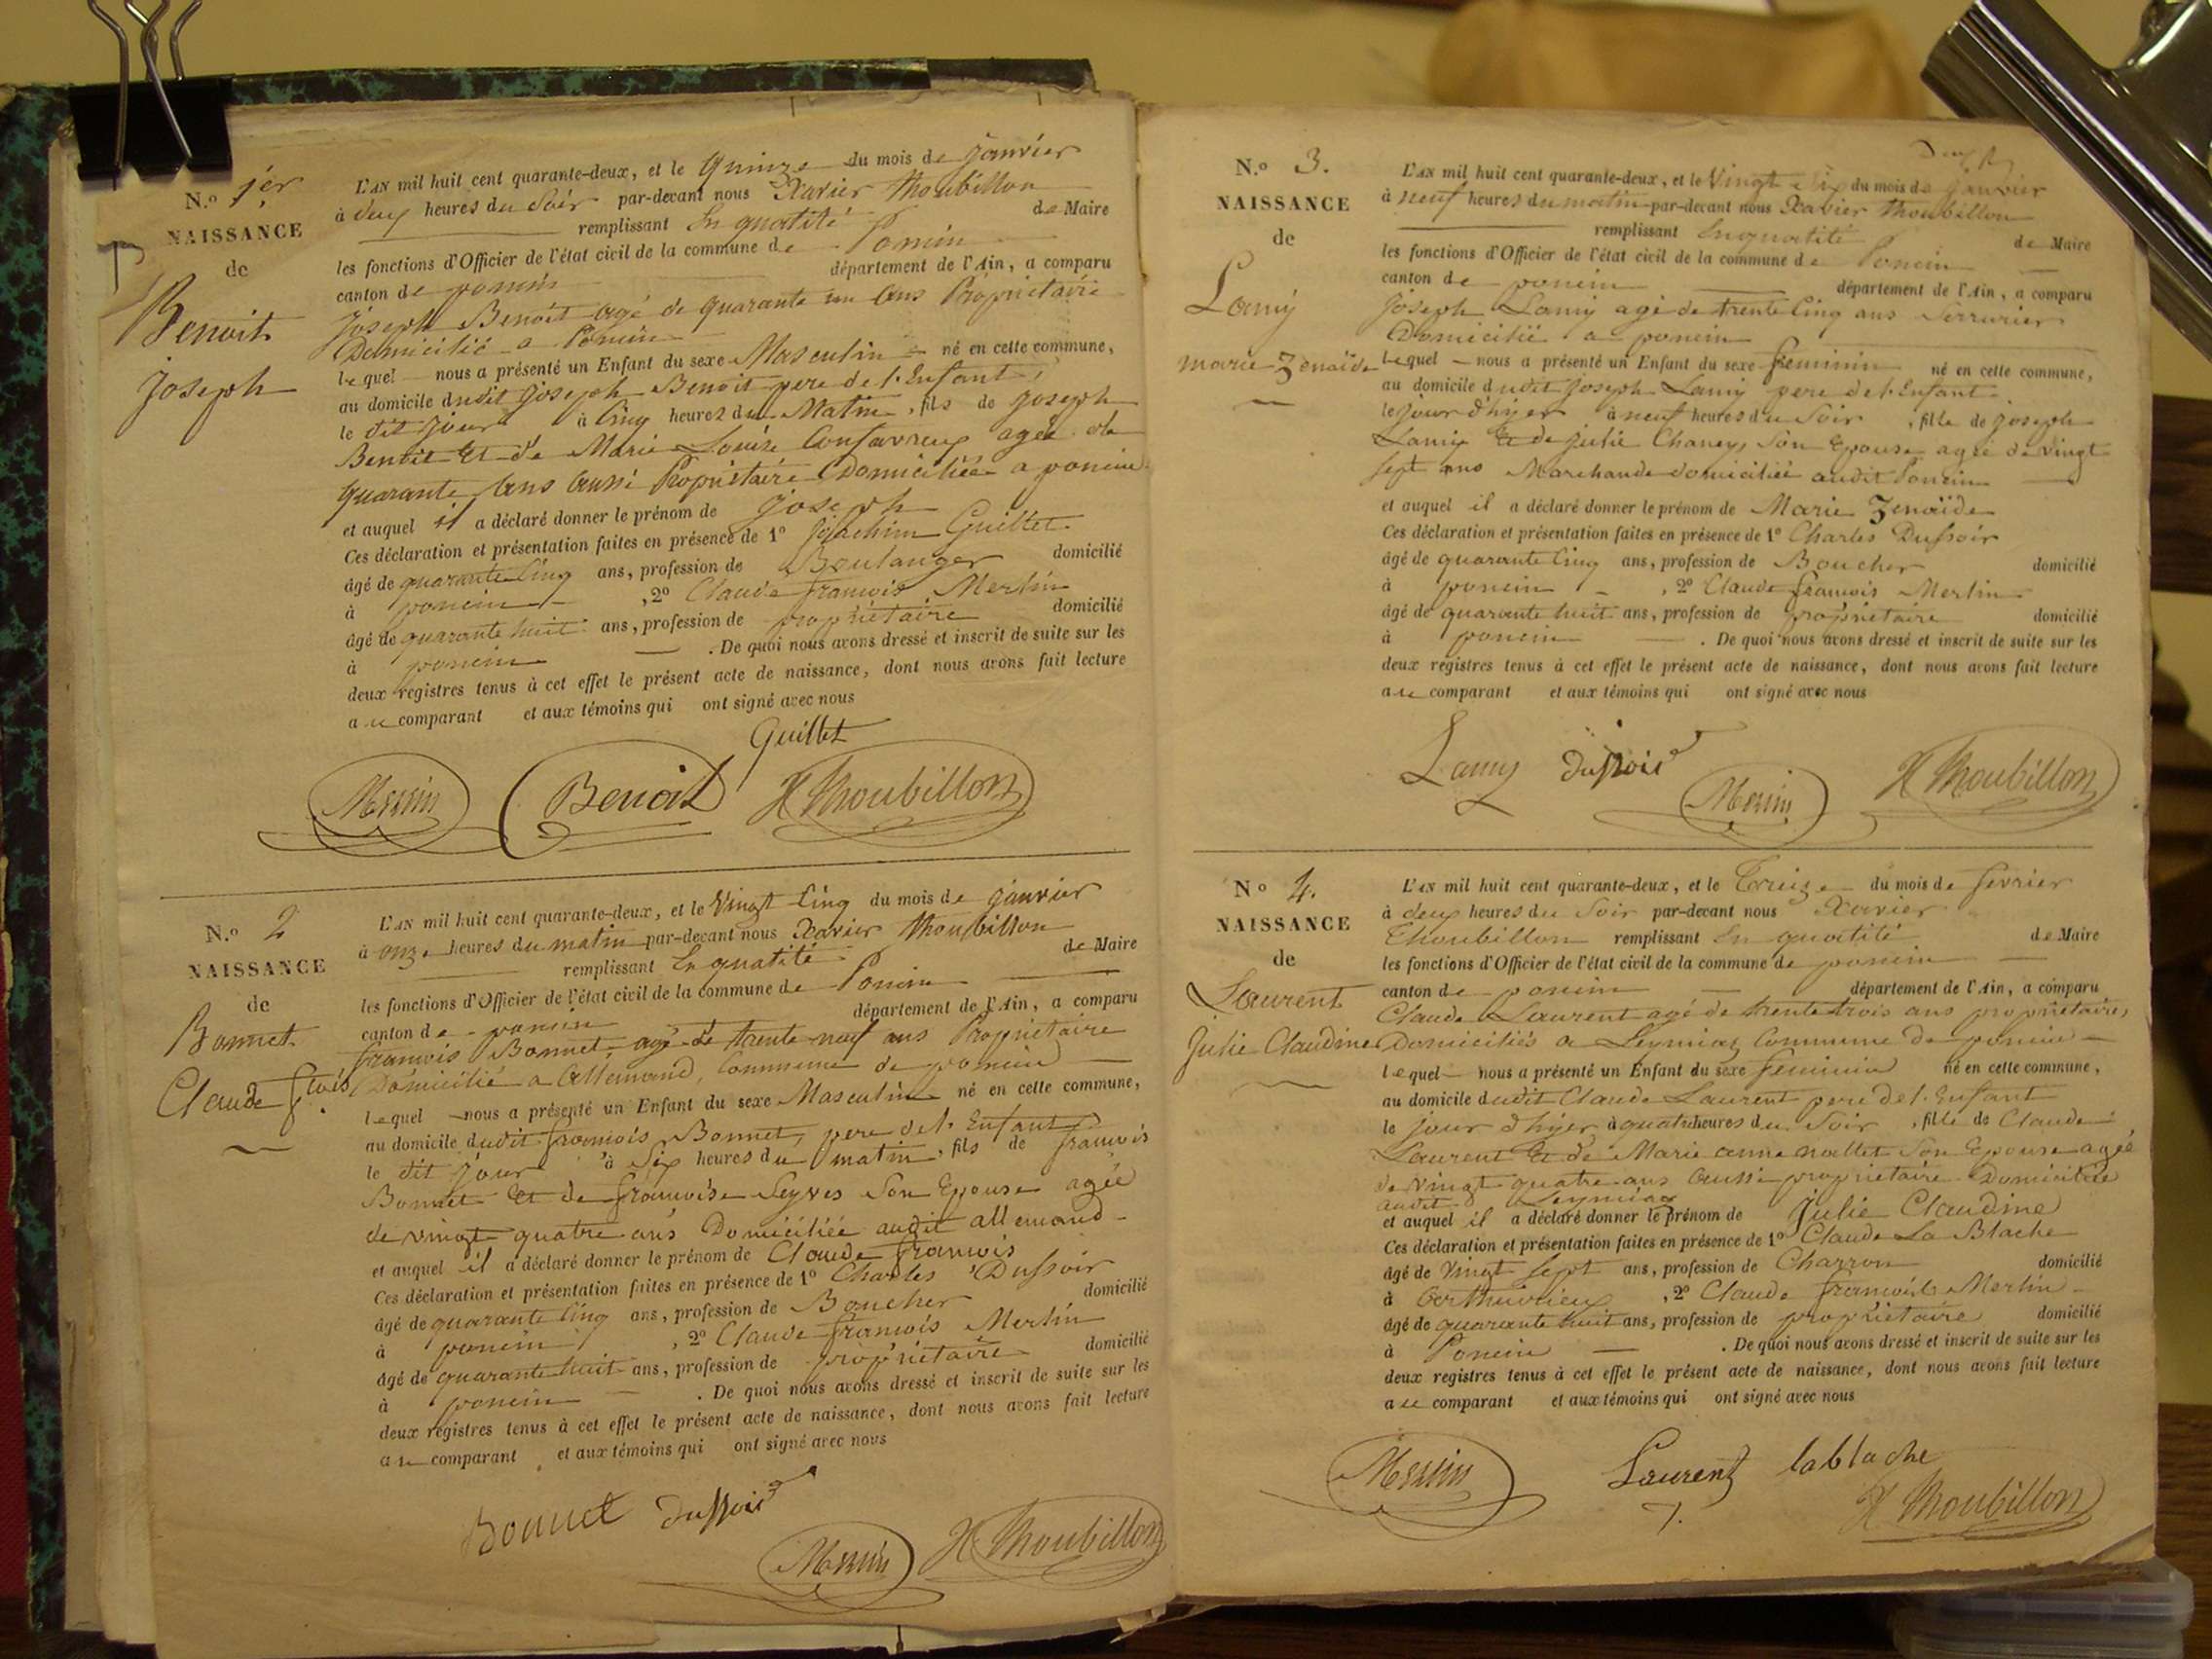 N.º 1er
NAISSANCE
de
Benoit
Joseph
L'AN mil huit cent quarante-deux, et le quinze du mois de janvier
à deux heures du soir par-devant nous Xavier Thoubillon
remplissant En qualité de Maire
les fonctions d'Officier de l'état civil de la commune de Poncin
canton de poncin département de l'Ain, a comparu
Joseph Benoit agé de quarante un ans Propriétaire
Domicilié a Poncin
lequel nous a présenté un Enfant du sexe Masculin né en cette commune,
au domicile dudit joseph Benoit pere de l'Enfant,
le dit jour à cinq heures du Matin, fils de joseph
Benoit Et de Marie Louise agée de
quarante ans aussi Propriétaire Domiciliée a poncin
et auquel il a déclaré donner le prénom de joseph
Ces déclaration et présentation faites en présence de 1º Joachim Guillet
âgé de quarante cinq ans, profession de Boulanger domicilié
à poncin , 2º Claude françois Merlin
âgé de quarante huit ans, profession de propriétaire domicilié
à poncin . De quoi nous avons dressé et inscrit de suite sur les
deux registres tenus à cet effet le présent acte de naissance, dont nous avons fait lecture
au comparant et aux témoins qui ont signé avec nous
Guillet
Merlin Benoit X Thoubillon
N.º 2
NAISSANCE
de
Bonnet
Claude fçois
L'AN mil huit cent quarante-deux, et le vingt cinq du mois de janvier
à onze heures du matin par-devant nous Xavier Thoubillon
remplissant En qualité de Maire
les fonctions d'Officier de l'état civil de la commune de Poncin
canton de poncin département de l'Ain, a comparu
françois Bonnet, agé de trente neuf ans Propriétaire
Domicilié a allemand, Commune de poncin
lequel nous a présenté un Enfant du sexe Masculin né en cette commune,
au domicile dudit françois Bonnet, pere de l'Enfant
le dit jour à six heures du matin, fils de françois
Bonnet Et de françoise Seyves son Epouse agée
de vingt quatre ans Domiciliée audit allemand
et auquel il a déclaré donner le prénom de Claude françois
Ces déclaration et présentation faites en présence de 1º Charles Dussoir
âgé de quarante cinq ans, profession de Boucher domicilié
à poncin , 2º Claude françois Merlin
âgé de quarante huit ans, profession de propriétaire domicilié
à poncin . De quoi nous avons dressé et inscrit de suite sur les
deux registres tenus à cet effet le présent acte de naissance, dont nous avons fait lecture
au comparant et aux témoins qui ont signé avec nous
Bonnet Dussoir
Merlin X Thoubillon
N.º 3.
NAISSANCE
de
Lamy
marie Zenaïde
L'AN mil huit cent quarante-deux, et le vingt six du mois de janvier
à neuf heures du matin par-devant nous Xavier Thoubillon
remplissant En qualité de Maire
les fonctions d'Officier de l'état civil de la commune de Poncin
canton de poncin département de l'Ain, a comparu
Joseph Lamy agé de trente cinq ans Serrurier
Domicilié a poncin
lequel nous a présenté un Enfant du sexe feminin né en cette commune,
au domicile dudit joseph Lamy pere de l'Enfant
le jour d'hyer à neuf heures du soir, fille de joseph
Lamy Et de julie Chaney, son Epouse agée de vingt
sept ans Marchande domiciliée audit Poncin
et auquel il a déclaré donner le prénom de Marie Zenaïde
Ces déclaration et présentation faites en présence de 1º Charles Dussoir
âgé de quarante cinq ans, profession de Boucher domicilié
à poncin , 2º Claude françois Merlin
âgé de quarante huit ans, profession de propriétaire domicilié
à poncin . De quoi nous avons dressé et inscrit de suite sur les
deux registres tenus à cet effet le présent acte de naissance, dont nous avons fait lecture
au comparant et aux témoins qui ont signé avec nous
Lamy Dussoir
Merlin X Thoubillon
Nº 4.
NAISSANCE
de
Laurent
Julie Claudine
L'AN mil huit cent quarante-deux, et le Treize du mois de fevrier
à deux heures du soir par-devant nous Xavier
Thoubillon remplissant En qualité de Maire
les fonctions d'Officier de l'état civil de la commune de poncin
canton de poncin département de l'Ain, a comparu
Claude Laurent agé de trente trois ans propriétaire,
Domiciliés a Leymiaz Commune de poncin
lequel nous a présenté un Enfant du sexe feminin né en cette commune,
au domicile dudit Claude Laurent pere de l'Enfant
le jour d'hyer à quatre heures du soir, fille de Claude
Laurent Et de Marie anne nallet son Epouse agée
de vingt quatre ans aussi propriétaire Domiciliée
audit Leymiaz
et auquel il a déclaré donner le prénom de Julie Claudine
Ces déclaration et présentation faites en présence de 1º Claude La Blache
âgé de vingt sept ans, profession de Charron domicilié
à , 2º Claude françois Merlin
âgé de quarante huit ans, profession de propriétaire domicilié
à Poncin . De quoi nous avons dressé et inscrit de suite sur les
deux registres tenus à cet effet le présent acte de naissance, dont nous avons fait lecture
au comparant et aux témoins qui ont signé avec nous
Merlin Laurent lablache
X Thoubillon